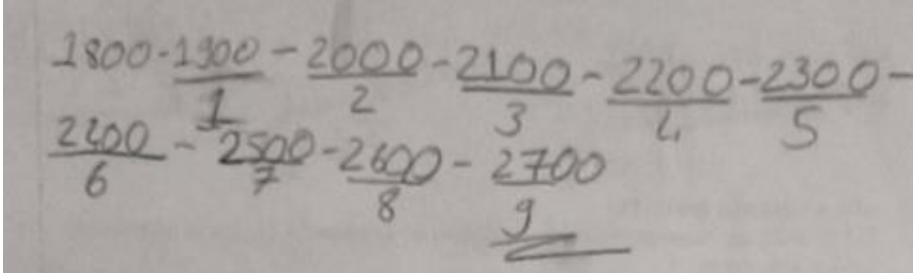 1800-1900-2000-2100-2200-2300-
1 2 3 4 5
2400-2500-2600-2700
6 7 8 9